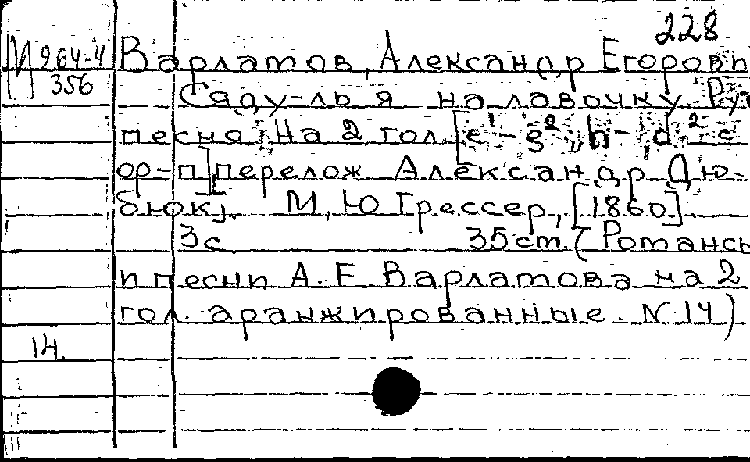 228
М 264-4 Варламов, Александр Егорови
356 Сяду-ль я на лавочку. Ру
песня. На 2 гол. [e¹-g², h-d²
ф-п] перелож Александр Дю-
бюк]. М, Ю Грессер, [1860].
3с. 35 ст. (Романсы
и песни А. Е. Варламова на 2
гол. аранжированные. N. 14)
14.